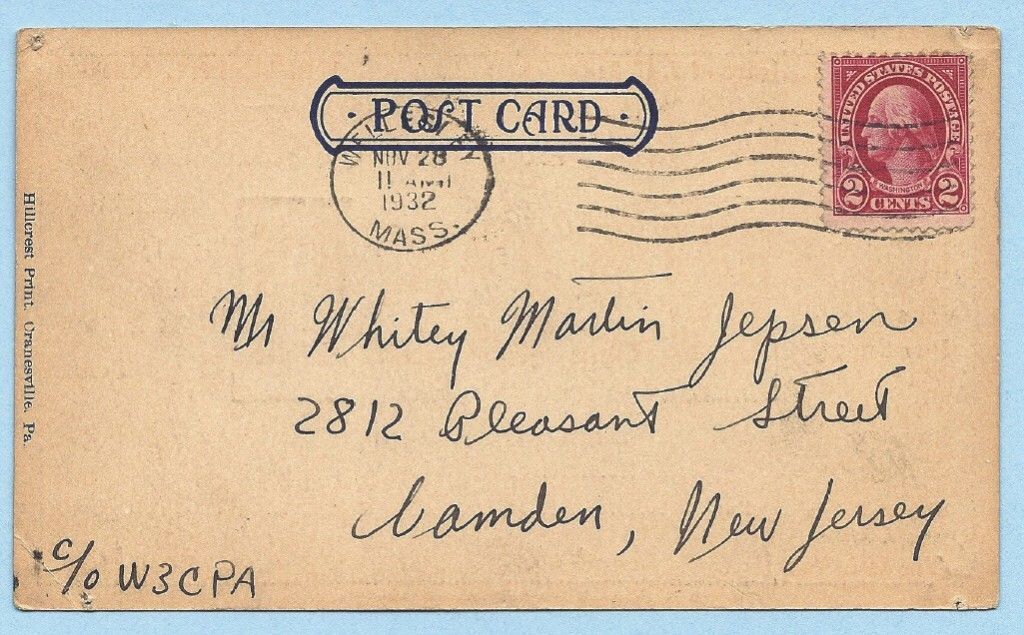 · POST CARD ·
WELLESLEY
NOV 28
11 AM
1932
MASS.
UNITED STATES POSTAGE
WASHINGTON
2 CENTS 2
Mr Whitey Martin Jepsen
2812 Pleasant Street
Camden, New Jersey
c/o W3CPA
Hillcrest Print. Cranesville, Pa.